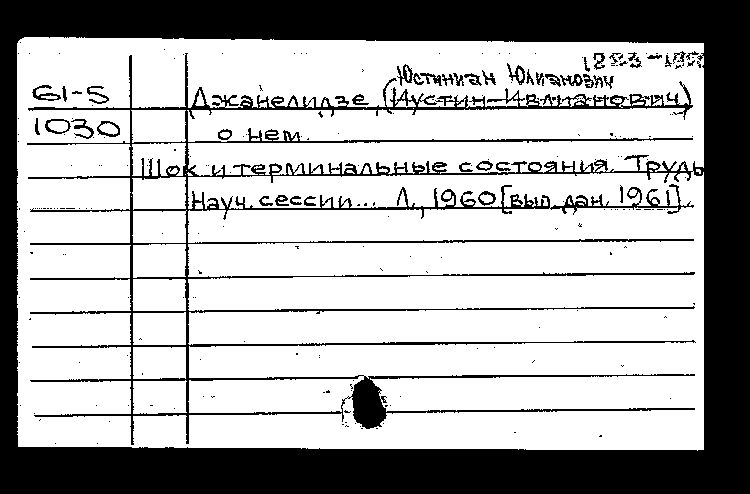 1883-195
Юстиниан Юлианович
61-5 Джанелидзе, (Иустин-Ивлианович)
1030 о нем.
Шок и терминальные состояния. Труды
Науч. сессии... Л., 1960 [вып. дан. 1961].